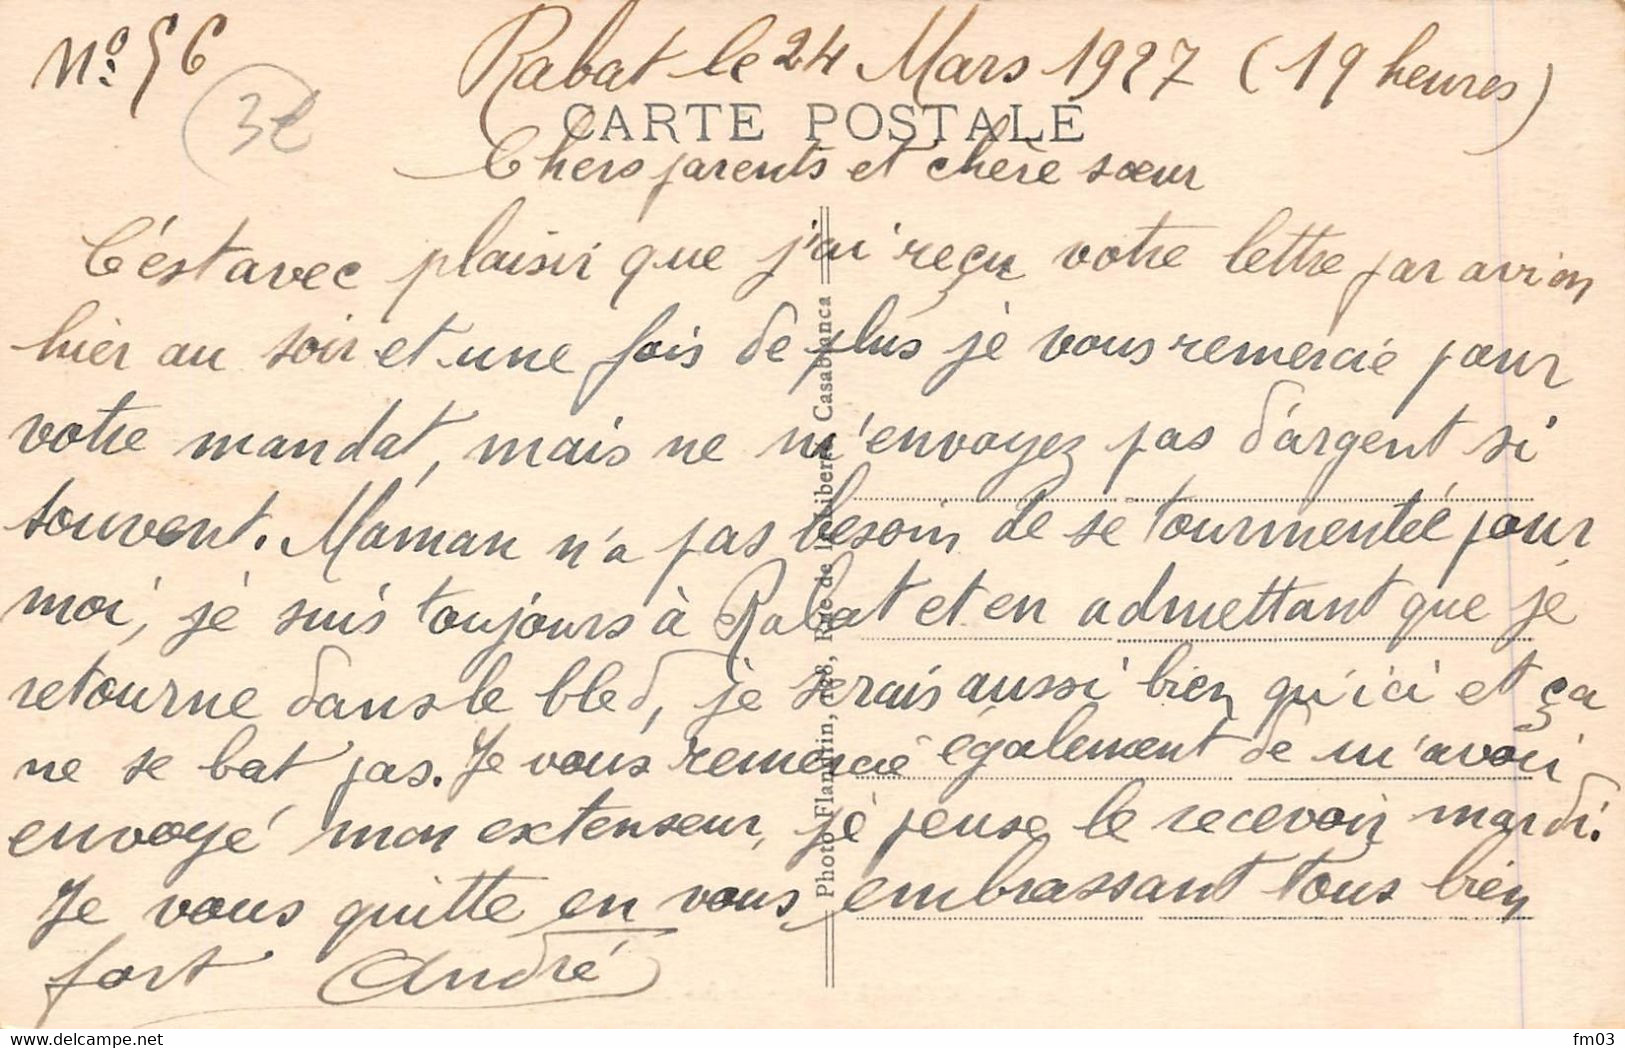 No. 56
3€
Rabat le 24 Mars 1927 (19 heures)
CARTE POSTALE
Chers parents et chère sœur
C'est avec plaisir que j'ai reçu votre lettre par avion
hier au soir et une fois de plus je vous remercie pour
votre mandat, mais ne m'envoyez pas d'argent si
souvent. Maman n'a pas besoin de se tourmentée pour
moi, je suis toujours à Rabat et en admettant que je
retourne dans le bled, je serais aussi bien qu'ici et ça
ne se bat pas. Je vous remercie également de m'avoir
envoyé mon extenseur, je pense le recevoir mardi.
Je vous quitte en vous embrassant tous bien
fort André
Photo Flandrin, 128, Rue de la Liberté, Casablanca
delcampe.net
fm03